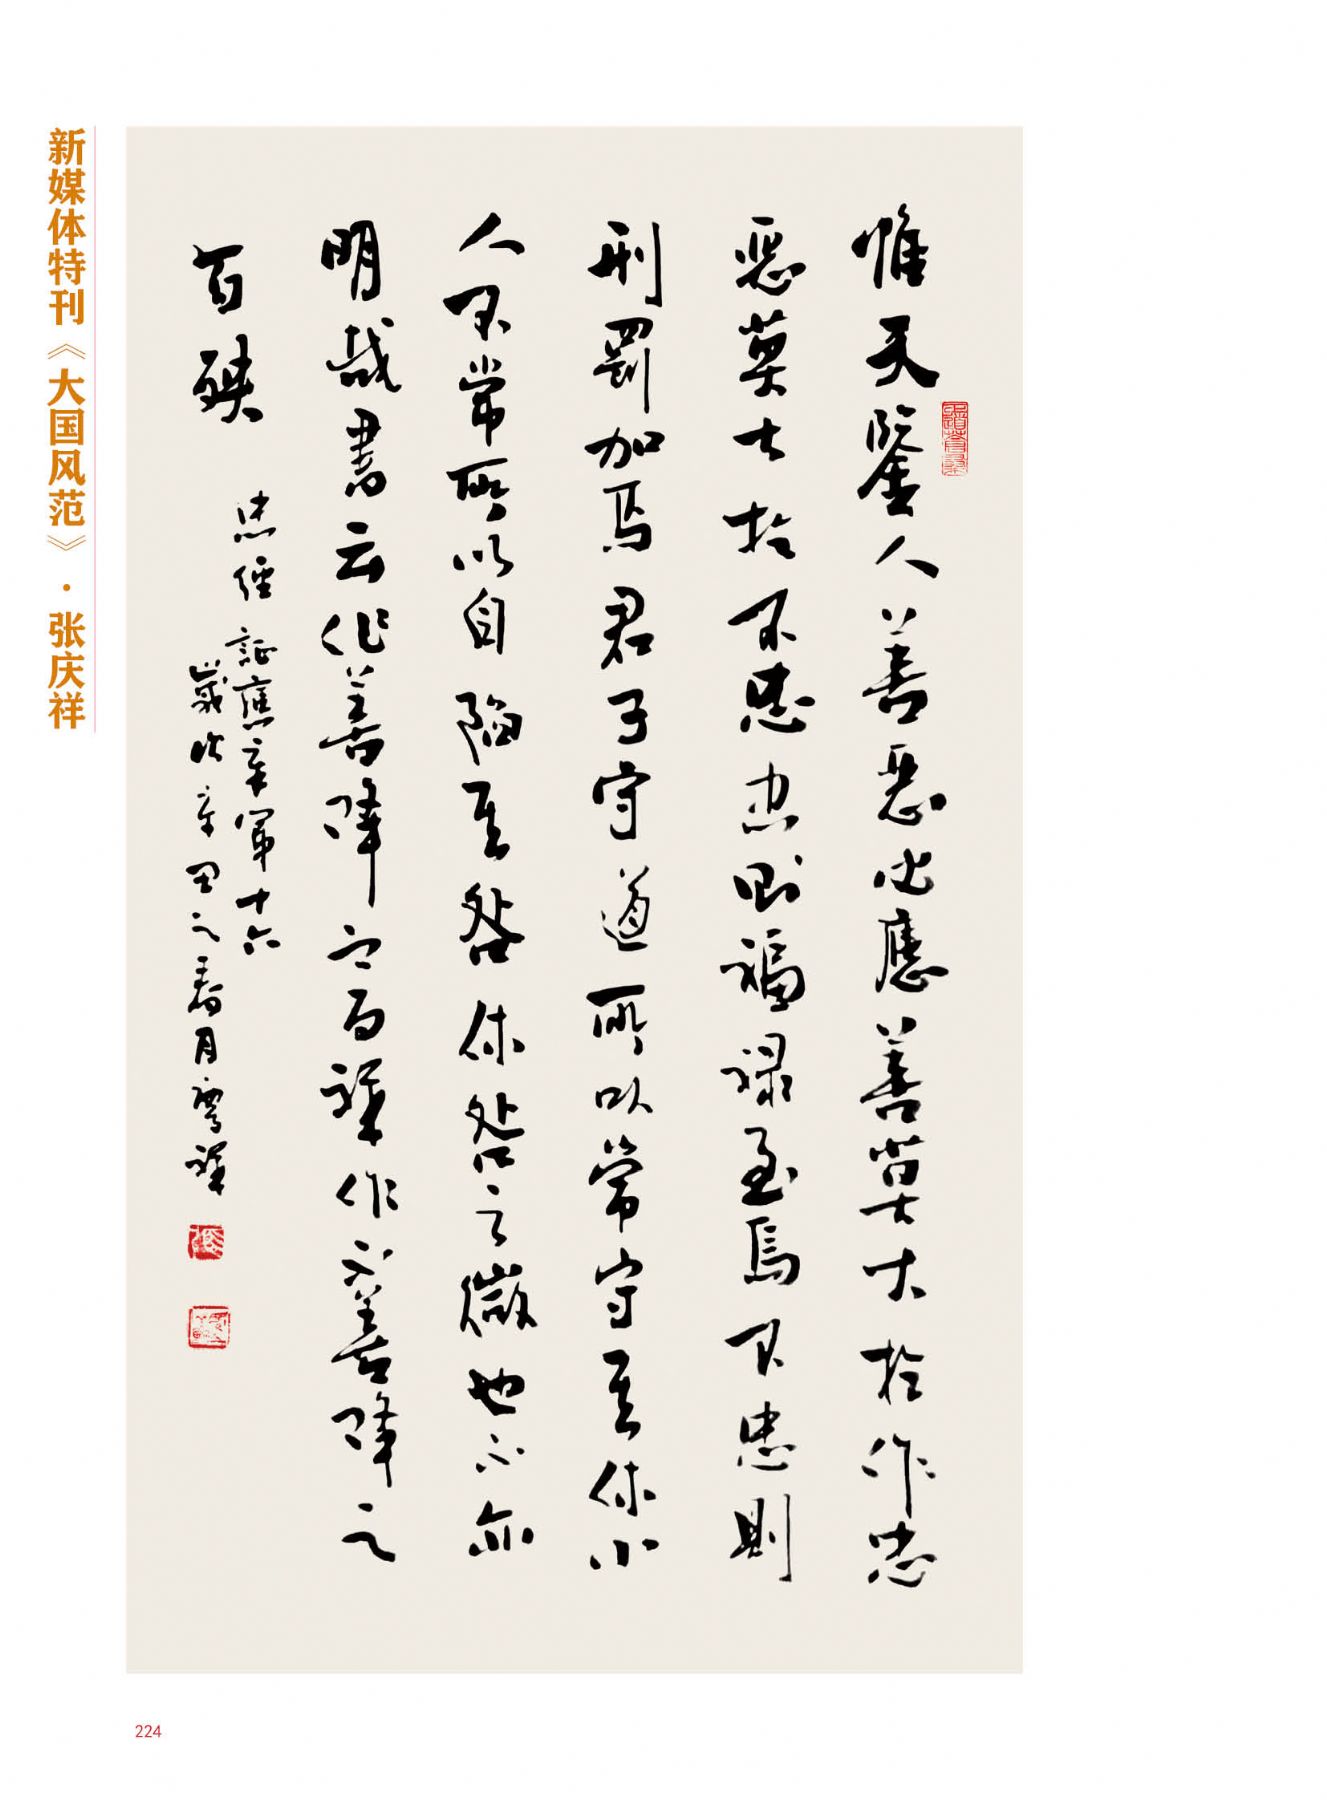 新媒体特刊《大国风范》·张庆祥
惟天鑒人善惡必應善莫大於作忠
惡莫大於不忠忠則福祿至焉不忠則
刑罰加焉君子守道所以常守其休小
人不常所以自陷其咎休咎之徵也不亦
明哉書云作善降之百祥作不善降之
百殃
忠經證應章第十六
歲次辛丑之春月慶祥
224